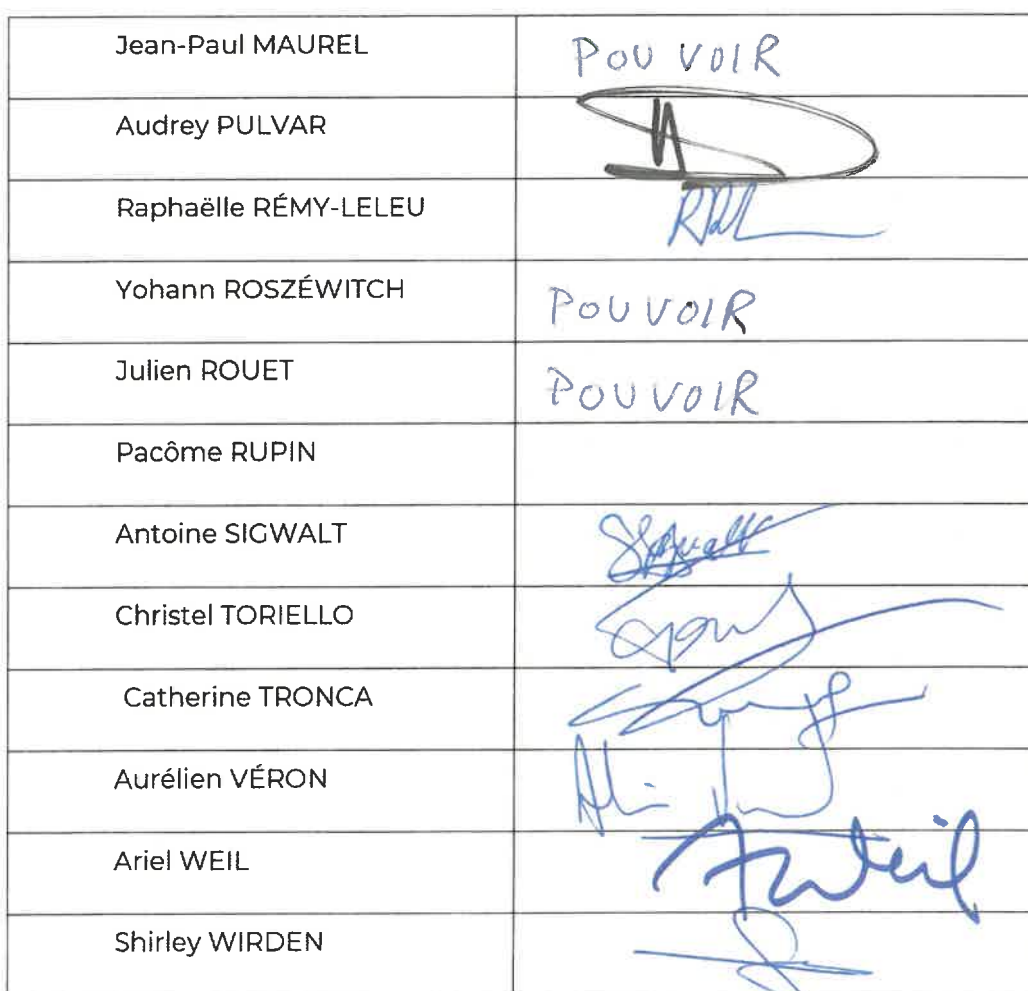 Jean-Paul MAUREL POUVOIR
Audrey PULVAR
Raphaëlle RÉMY-LELEU
Yohann ROSZÉWITCH POUVOIR
Julien ROUET POUVOIR
Pacôme RUPIN
Antoine SIGWALT
Christel TORIELLO
Catherine TRONCA
Aurélien VÉRON
Ariel WEIL
Shirley WIRDEN